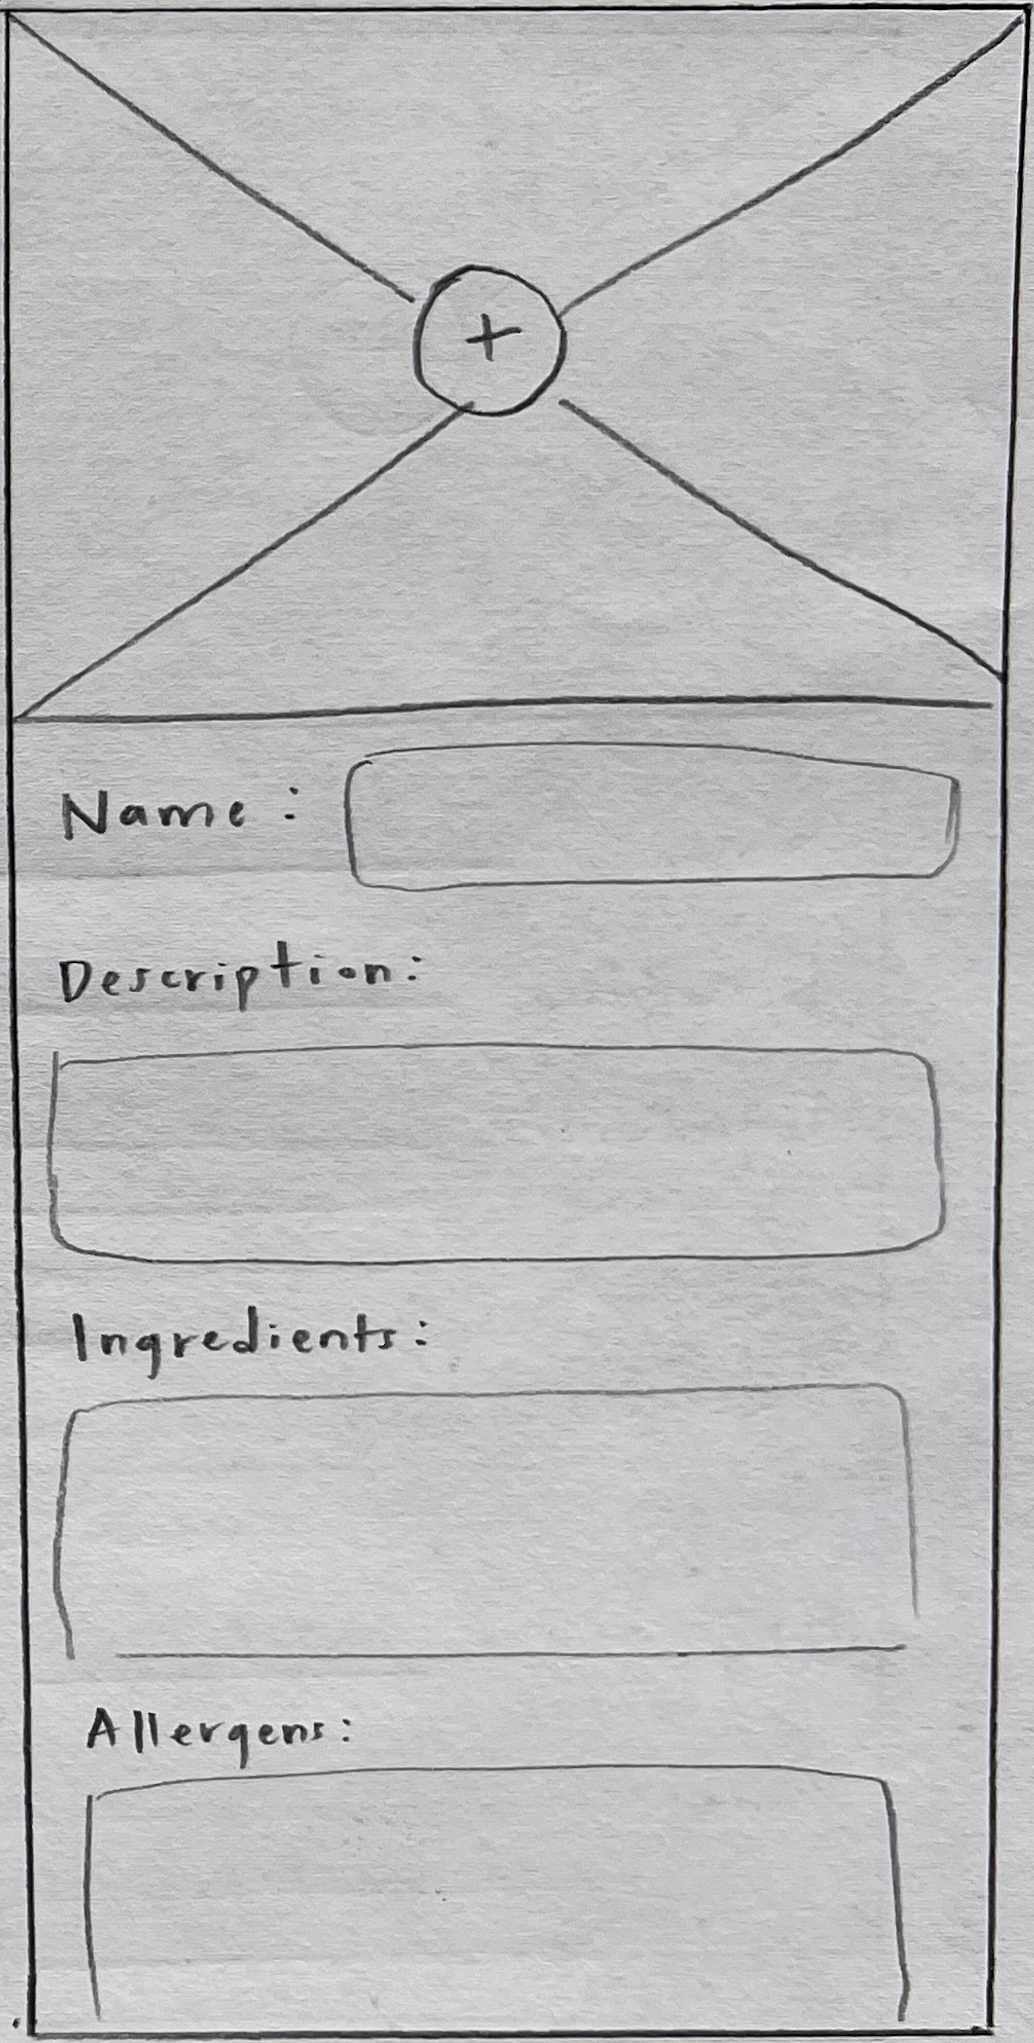 +
Name :
Description:
Ingredients:
Allergens: